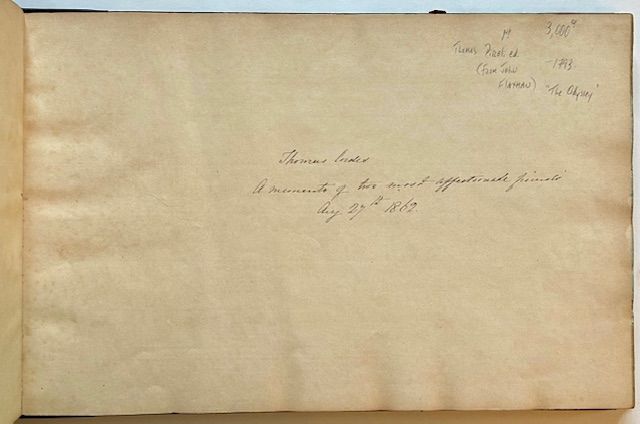 3,000
Thomas Piroli ed.
(from John
Flaxman)
-1793-
"The Odyssey"
Thomas
A memento of two most affectionate friends
Aug 27th 1862.